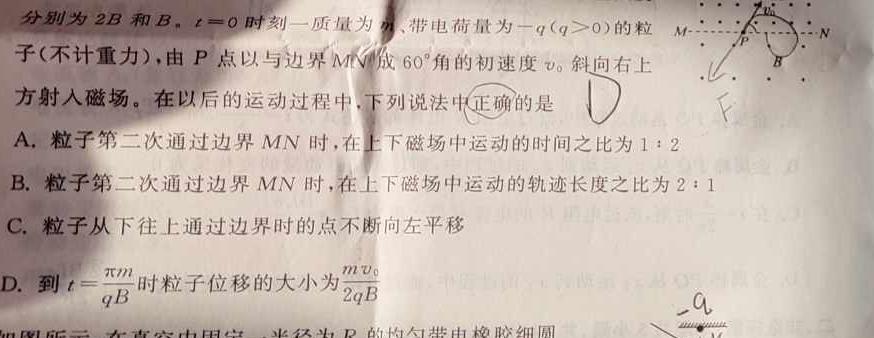 分别为 2B 和 B。t=0 时刻一质量为 m、带电荷量为-q(q>0)的粒
子(不计重力),由 P 点以与边界 MN 成 60°角的初速度 v₀ 斜向右上
方射入磁场。在以后的运动过程中,下列说法中正确的是
D
A. 粒子第二次通过边界 MN 时,在上下磁场中运动的时间之比为 1:2
B. 粒子第二次通过边界 MN 时,在上下磁场中运动的轨迹长度之比为 2:1
C. 粒子从下往上通过边界时的点不断向左平移
D. 到 t=πm/qB时粒子位移的大小为mv₀/2qB
在真空中固定一半径为 R 的均匀带电橡胶细圆
v₀
M
N
P
B
F
-q